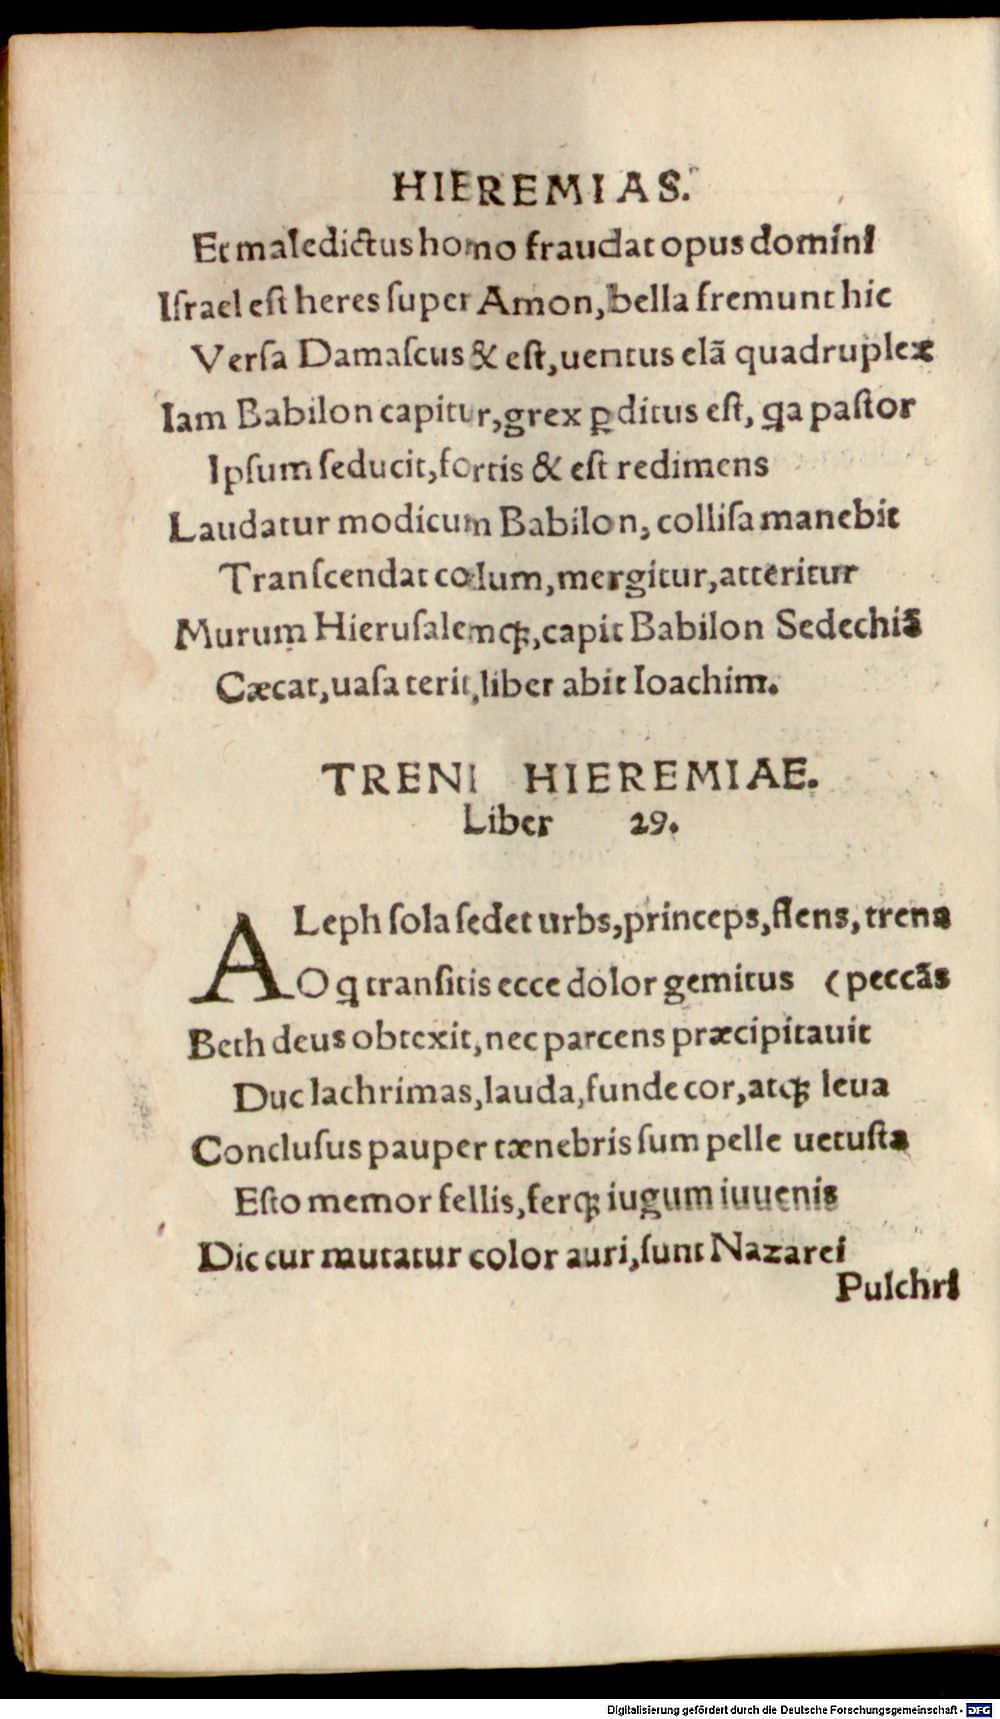 HIEREMIAS.
Et maledictus homo fraudat opus domini
Iſrael eſt heres ſuper Amon, bella fremunt hic
Verſa Damaſcus & eſt, uentus elã quadruplex
Iam Babilon capitur, grex ꝑditus eſt, ꝗa paſtor
Ipſum ſeducit, fortis & eſt redimens
Laudatur modicum Babilon, colliſa manebit
Tranſcendat cœlum, mergitur, atteritur
Murum Hieruſalemqꝫ, capit Babilon Sedechiã
Cæcat, uaſa terit, liber abit Ioachim.
TRENI HIEREMIAE.
Liber 29.
ALeph ſola ſedet urbs, princeps, flens, trena
O ꝗ tranſitis ecce dolor gemitus (peccãs
Beth deus obtexit, nec parcens præcipitauit
Duc lachrimas, lauda, funde cor, atqꝫ leua
Concluſus pauper tænebris ſum pelle uetuſta
Eſto memor fellis, ferqꝫ iugum iuuenis
Dic cur mutatur color auri, ſunt Nazarei
Pulchri
Digitalisierung gefördert durch die Deutsche Forschungsgemeinschaft - DFG